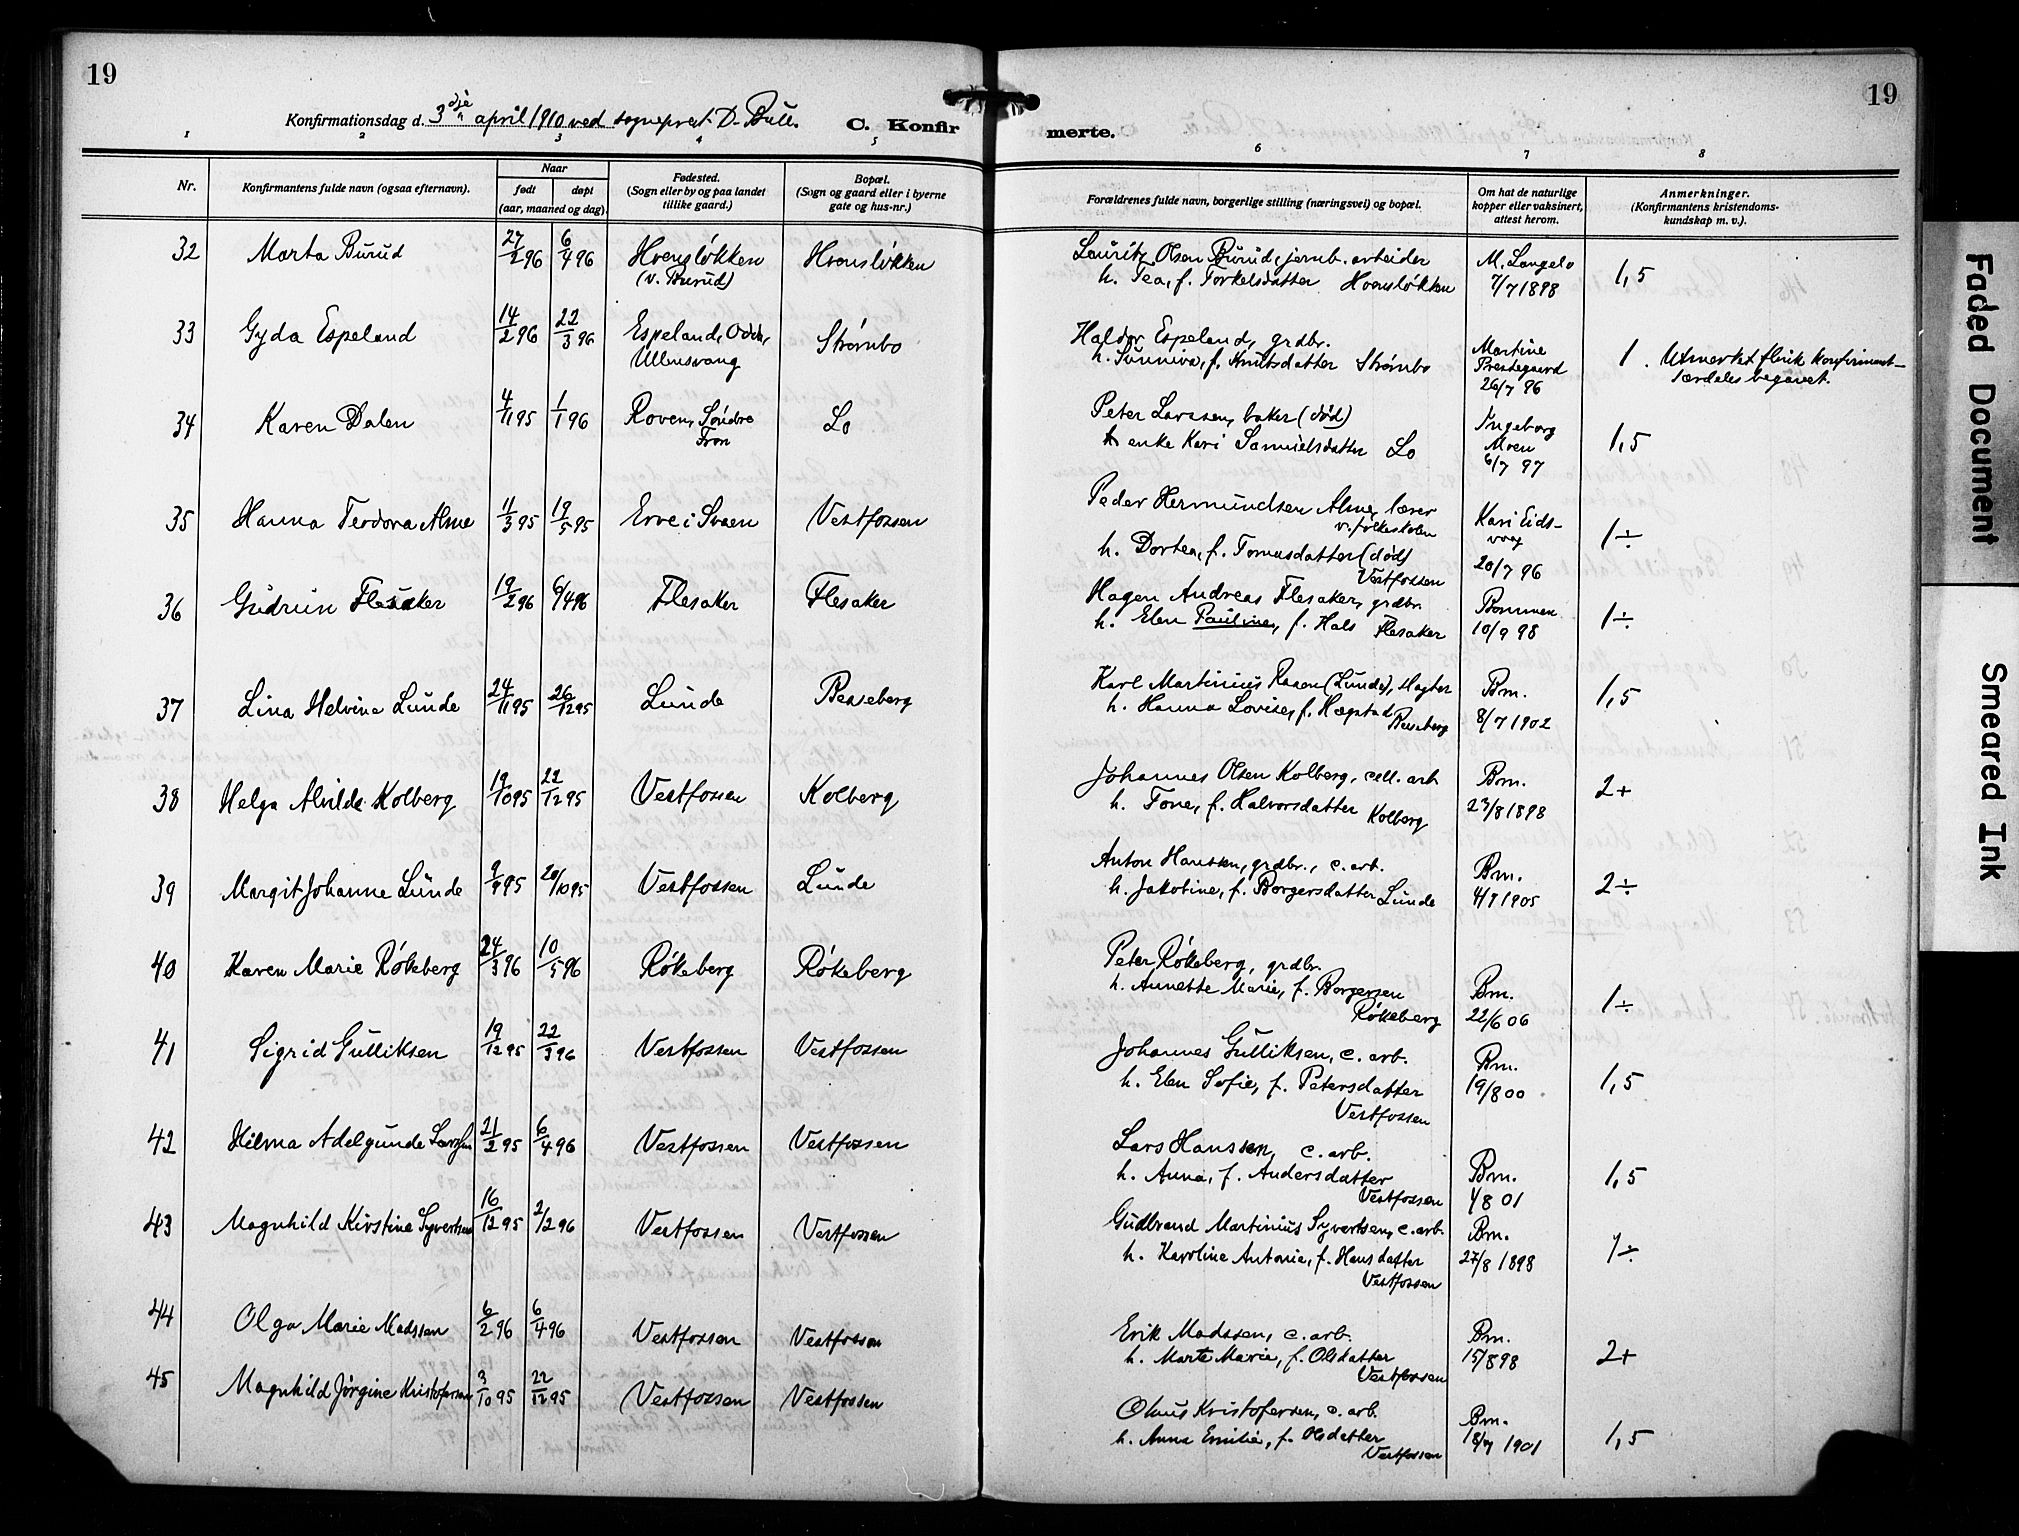 19
19
Konfirmationsdag d. 3dje april 1910 ved sogneprest D. Bull.
C. Konfir
merte.
1 2 3 4 5 6 7 8
Nr.
Konfirmantens fulde navn (ogsaa efternavn).
Naar
født
døpt
(aar, maaned og dag)
Fødested.
(Sogn eller by og paa landet
tillike gaard.)
Bopæl.
(Sogn og gaard eller i byerne
gate og hus-nr.)
Forældrenes fulde navn, borgerlige stilling (næringsvei) og bopæl.
Om hat de naturlige
kopper eller vaksinert,
attest herom.
Anmerkninger.
(Konfirmantens kristendoms-
kundskap m. v.).
32 Marta Burud 27/2 96 6/4 96 Hvensløkken (v. Burud) Hvensløkken
Lauritz Olsen Burud, jernb. arbeider
h. Tea, f. Torkelsdatter Hvensløkken
M. Langelo
7/7 1898
1,5
33 Gyda Espeland 14/2 96 22/3 96 Espeland, Odda, Ullensvang Strømbo
Haldor Espeland, grdbr.
h. Sunneva, f. Knutsdatter Strømbo
Martine
Prestegaard
26/7 96
1. Utmerket flink konfirmant –
særdeles begavet.
34 Karen Dalen 4/11 95 1/1 96 Roven, Søndre Fron Lo
Peter Larssen, baker (død)
enke Kari Samuelsdatter Lo
Ingeborg
Moen
6/7 97
1,5
35 Hanna Teodora Alme 11/3 95 19/5 95 Erve i Svaen Vestfossen
Peder Hermundsen Alme, lærer
v. folkeskolen
h. Dortea, f. Tomasdatter (død)
Vestfossen
Kari Eids-
vaag
20/7 96
1÷
36 Gudrun Flesaker 19/2 96 6/4 96 Flesaker Flesaker
Hagen Andreas Flesaker, grdbr.
h. Elen Pauline, f. Hals Flesaker
Bommen
10/9 98
1÷
37 Lina Helvine Lunde 24/11 95 26/12 95 Lunde Besseberg
Karl Martinius Raaen (Lunde), slagter
h. Hanna Lovise, f. Hægstad
Besseberg
Bm.
8/7 1902
1,5
38 Helga Alvilde Kolberg 19/10 95 22/12 95 Vestfossen Kolberg
Johannes Olsen Kolberg, cell. arb
h. Tone, f. Halvorsdatter Kolberg
Bm.
23/8 1898
2+
39 Margit Johanne Lunde 9/9 95 20/10 95 Vestfossen Lunde
Anton Hanssen, grdbr., c. arb.
h. Jakobine, f. Borgersdatter Lunde
Bm.
4/9 1905
2÷
40 Karen Marie Røkeberg 24/3 96 10/5 96 Røkeberg Røkeberg
Peter Røkeberg, grdbr.
h. Annette Marie, f. Borgersen
Røkeberg
Bm.
22/6 06
1÷
41 Sigrid Gulliksen 19/12 95 22/3 96 Vestfossen Vestfossen
Johannes Gulliksen, c. arb.
h. Elen Sofie, f. Petersdatter
Vestfossen
Bm.
19/8 00
1,5
42 Hilma Adelgunde Larssen 21/2 95 6/4 96 Vestfossen Vestfossen
Lars Hanssen, c. arb.
h. Anna, f. Andersdatter
Vestfossen
Bm.
1/8 01
1,5
43 Magnhild Kirstine Syvertsen 16/12 95 2/2 96 Vestfossen Vestfossen
Gudbrand Martinius Syvertsen, c. arb.
h. Karoline Antonie, f. Hansdatter
Vestfossen
Bm.
27/8 1898
1÷
44 Olga Marie Madssen 6/2 96 6/4 96 Vestfossen Vestfossen
Erik Madssen, c. arb.
h. Marte Marie, f. Olsdatter
Vestfossen
Bm.
15/8 98
2+
45 Magnhild Jørgine Kristofersen 3/10 95 22/12 95 Vestfossen Vestfossen
Olaus Kristofersen, c. arb.
h. Anna Emilie, f. Olsdatter
Vestfossen
Bm.
18/7 1901
1,5
Faded Document
Smeared Ink